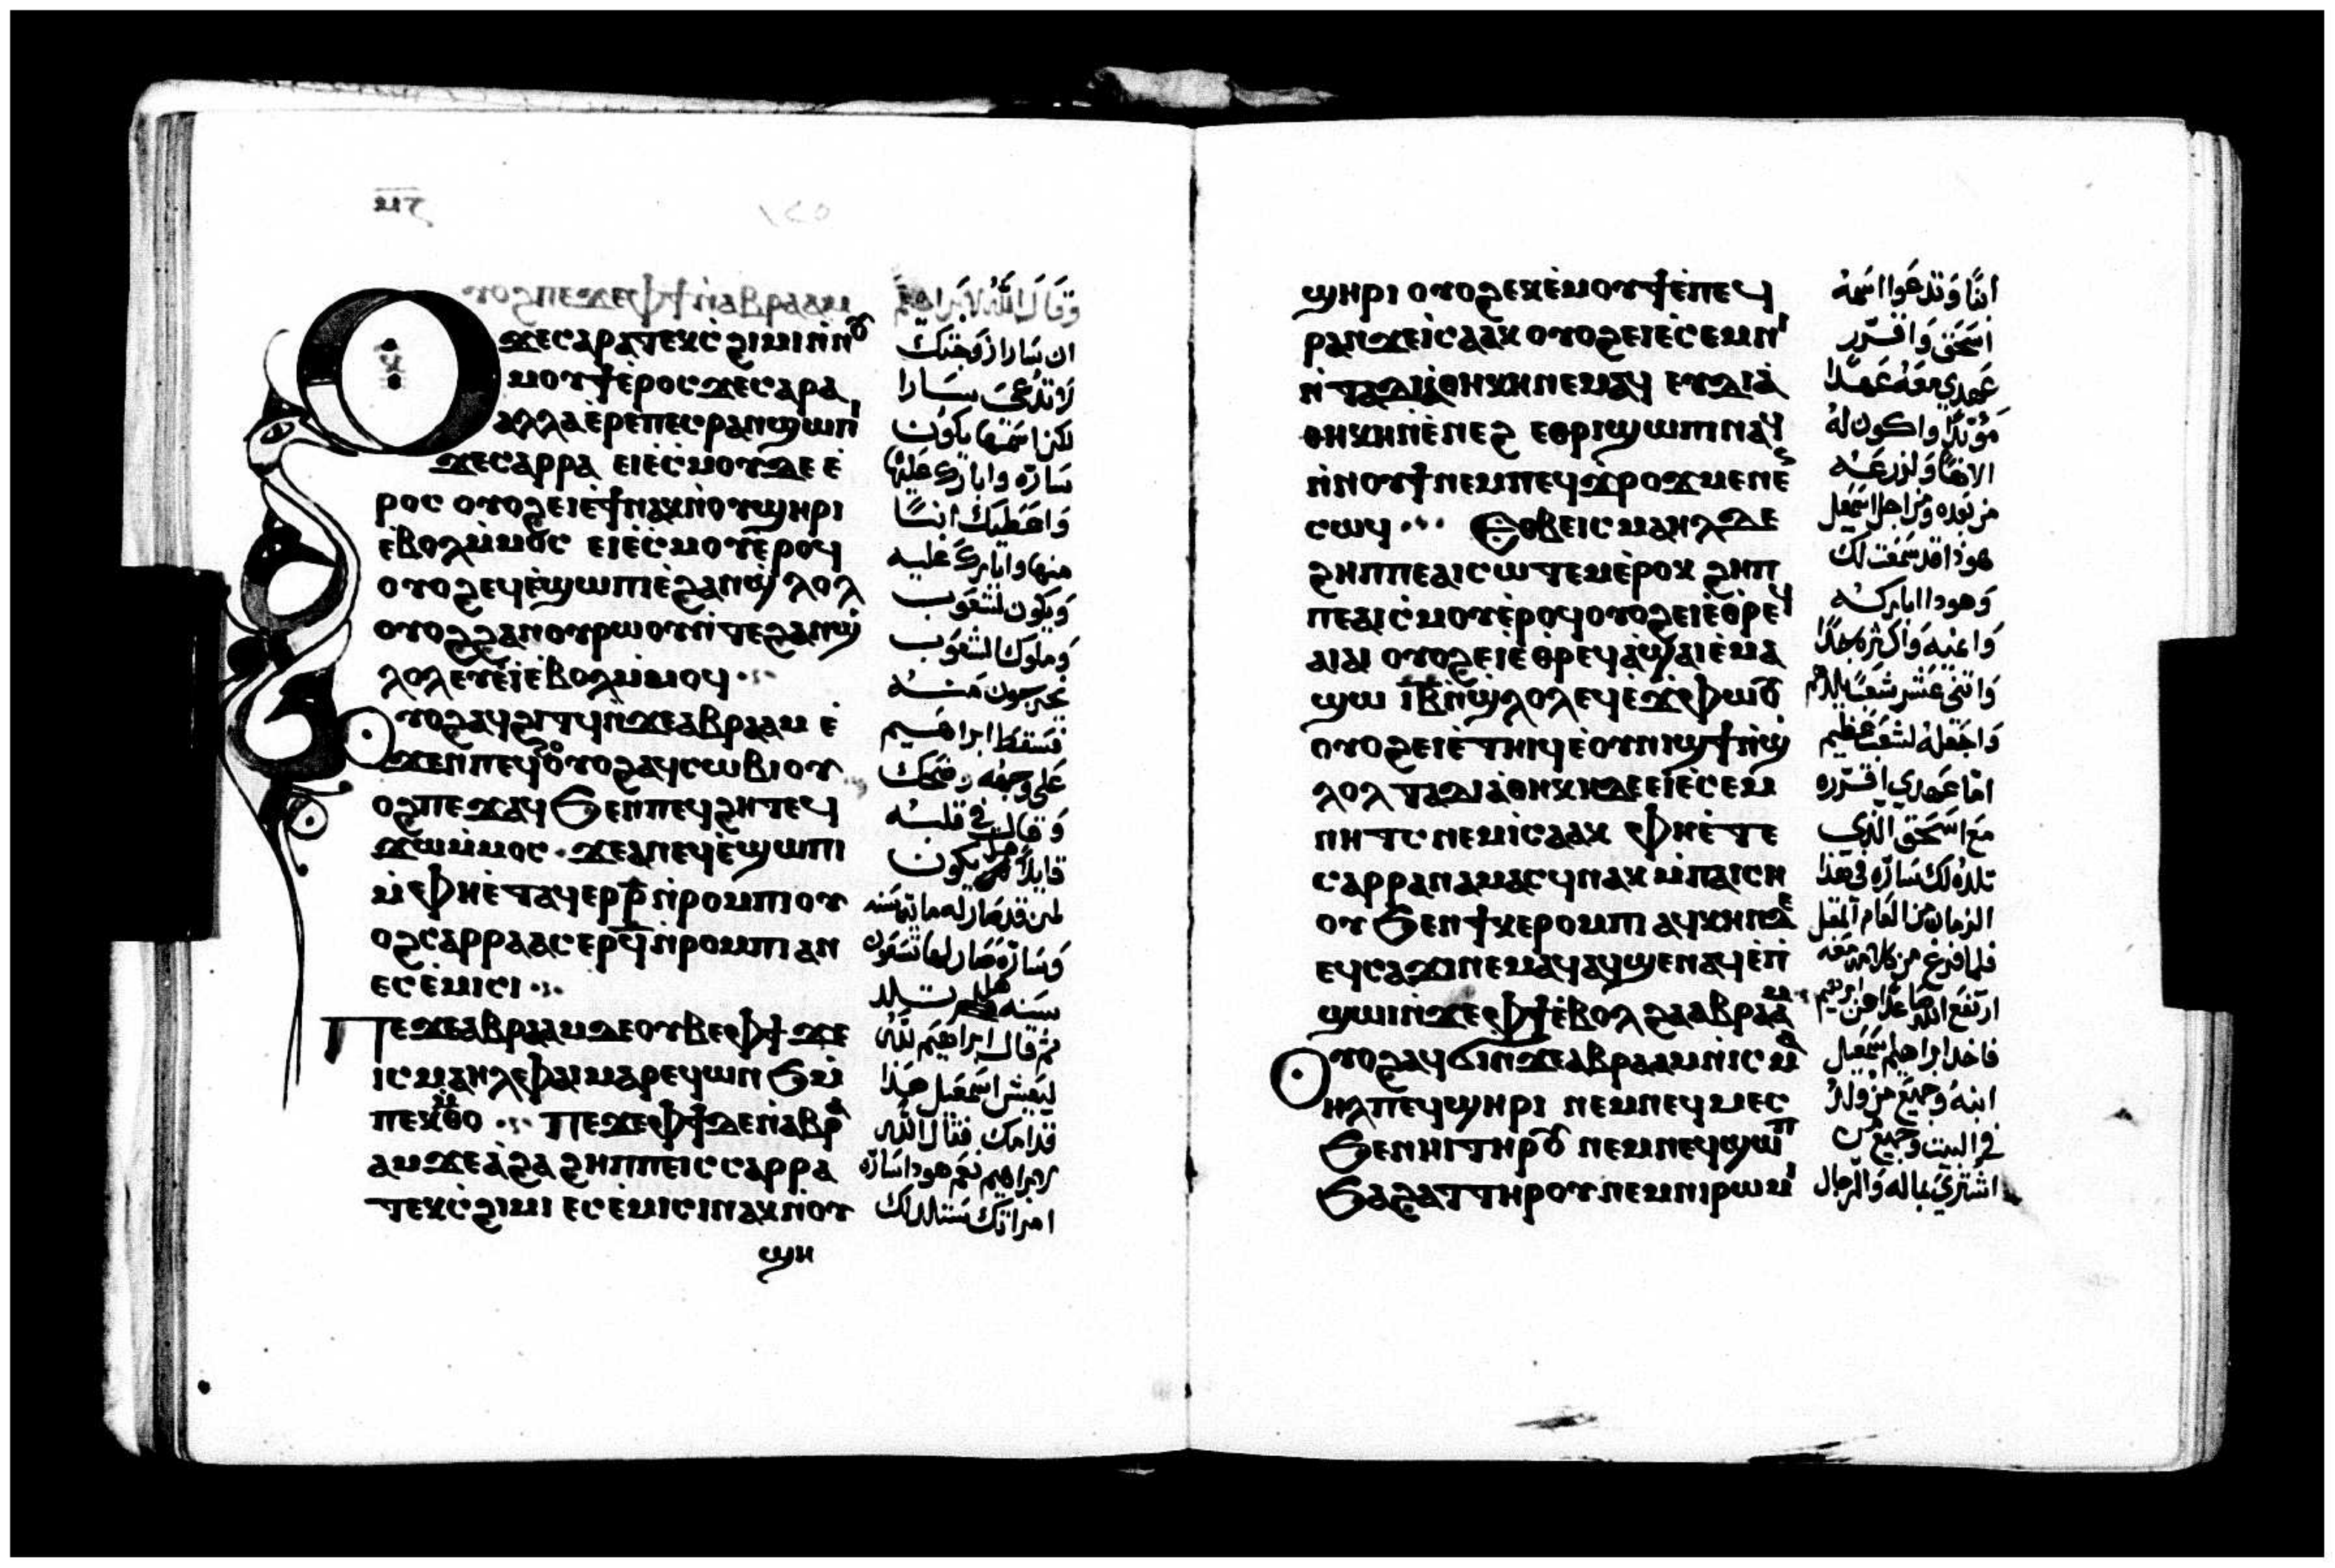 ⲙⲅ
ⲟⲩⲟϩ ⲡⲉϫⲉ ⲫϯ ⲛ̀ⲁⲃⲣⲁⲁⲙ
ϫⲉ ⲥⲁⲣⲁ ⲧⲉⲕⲥ̀ϩⲓⲙⲓ ⲛ̀ⲛⲟⲩ
ⲙⲟⲩϯ ⲉ̀ⲣⲟⲥ ϫⲉ ⲥⲁⲣⲁ
ⲁⲗⲗⲁ ⲉ̀ⲣⲉ ⲡⲉⲥⲣⲁⲛ ϣⲱⲡⲓ
ϫⲉ ⲥⲁⲣⲣⲁ ⲉⲓⲉ̀ⲥ̀ⲙⲟⲩ ⲇⲉ ⲉ̀
ⲣⲟⲥ ⲟⲩⲟϩ ⲉⲓⲉ̀ϯ ⲛⲁⲕ ⲛ̀ⲟⲩϣⲏⲣⲓ
ⲉ̀ⲃⲟⲗ ⲙ̀ⲙⲟⲥ ⲉⲓⲉ̀ⲥ̀ⲙⲟⲩ ⲉ̀ⲣⲟϥ
ⲟⲩⲟϩ ⲉϥⲉ̀ϣⲱⲡⲓ ⲉ̀ϩⲁⲛϣ̀ⲗⲟⲗ
ⲟⲩⲟϩ ϩⲁⲛⲟⲩⲣⲱⲟⲩ ⲛ̀ⲧⲉ ϩⲁⲛϣ̀
ⲗⲟⲗ ⲉⲩⲉ̀ⲓ̀ ⲉ̀ⲃⲟⲗ ⲙ̀ⲙⲟϥ
ⲟⲩⲟϩ ⲁϥϩⲓⲧϥ ⲛ̀ϫⲉ ⲁⲃⲣⲁⲁⲙ ⲉ̀
ϫⲉⲛ ⲡⲉϥϩⲟ ⲟⲩⲟϩ ⲁϥⲥⲱⲃⲓ ⲟⲩ
ⲟϩ ⲡⲉϫⲁϥ ϧⲉⲛ ⲡⲉϥϩⲏⲧ ⲉϥ
ϫⲱ ⲙ̀ⲙⲟⲥ ϫⲉ ⲁⲛ ⲉϥⲉ̀ϣⲱⲡⲓ
ⲙ̀ⲫⲏⲉ̀ⲧⲁϥⲉⲣ ⲣ̅ ⲛ̀ⲣⲟⲙⲡⲓ ⲟⲩ
ⲟϩ ⲥⲁⲣⲣⲁ ⲁⲥⲉⲣ ϥ̅ ⲛ̀ⲣⲟⲙⲡⲓ ⲁⲛ
ⲉⲥⲉ̀ⲙⲓⲥⲓ
ⲡⲉϫⲉ ⲁⲃⲣⲁⲁⲙ ⲇⲉ ⲟⲩⲃⲉ ⲫϯ ϫⲉ
ⲓⲥⲙⲁⲏⲗ ⲫⲁⲓ ⲙⲁⲣⲉϥⲱⲛϧ ⲙ̀
ⲡⲉⲕⲙ̀ⲑⲟ ⲡⲉϫⲉ ⲫϯ ⲇⲉ ⲛ̀ⲁⲃⲣⲁ
ⲁⲙ ϫⲉ ⲁ̀ϩⲁ ϩⲏⲡⲡⲉ ⲓⲥ ⲥⲁⲣⲣⲁ
ⲧⲉⲕⲥ̀ϩⲓⲙⲓ ⲉⲥⲉ̀ⲙⲓⲥⲓ ⲛⲁⲕ ⲛ̀ⲟⲩ
ϣⲏ
وقال الله لابراهيم
ان سارا زوجتك
لا تدعى سارا
لكن اسمها يكون
سارّه وابارك عليها
واعطيك ابنًا
منها وابارك عليه
ويكون لشعوب
وملوك الشعوب
يخرجون منه
فسقط ابراهيم
على وجهه وضحك
وقال في قلبه
قايلًا هل يكون
لمن قد صار له ماية سنه
وسارّه صار لها تسعون
سنه هل تلد
ثم قال ابراهيم لله
ليعيش اسمعيل هذا
قدامك فقال الله
لابراهيم نعم هودا سارّه
امراتك ستلد لك
ϣⲏⲣⲓ ⲟⲩⲟϩ ⲉⲕⲉ̀ⲙⲟⲩϯ ⲉ̀ⲡⲉϥ
ⲣⲁⲛ ϫⲉ ⲓ̀ⲥⲁⲁⲕ ⲟⲩⲟϩ ⲉⲓⲉ̀ⲥⲉⲙⲛⲓ
ⲛ̀ⲧⲁⲇⲓⲁ̀ⲑⲏⲕⲏ ⲛⲉⲙⲁϥ ⲉⲩⲇⲓⲁ̀
ⲑⲏⲕⲏ ⲛ̀ⲉ̀ⲛⲉϩ ⲉⲑⲣⲓϣⲱⲡⲓ ⲛⲁϥ
ⲛ̀ⲛⲟⲩϯ ⲛⲉⲙ ⲡⲉϥϫ̀ⲣⲟϫ ⲙⲉⲛⲉⲛ
ⲥⲱϥ ⲉⲑⲃⲉ ⲓⲥⲙⲁⲏⲗ ⲇⲉ
ϩⲏⲡⲡⲉ ⲁⲓⲥⲱⲧⲉⲙ ⲉ̀ⲣⲟⲕ ϩⲏⲡ
ⲡⲉ ⲁⲓⲥ̀ⲙⲟⲩ ⲉ̀ⲣⲟϥ ⲟⲩⲟϩ ⲉⲓⲉ̀ⲑ̀ⲣⲉϥ
ⲁⲓⲁⲓ ⲟⲩⲟϩ ⲉⲓⲉ̀ⲑⲣⲉϥⲁ̀ϣⲁⲓ ⲉ̀ⲙⲁ
ϣⲱ ⲓ̅ⲃ̅ ⲛ̀ϣ̀ⲗⲟⲗ ⲉϥⲉ̀ϫ̀ⲫⲱⲟⲩ
ⲟⲩⲟϩ ⲉⲓⲉ̀ⲧⲏⲓϥ ⲉ̀ⲟⲩⲛⲓϣϯ ⲛ̀ϣ̀
ⲗⲟⲗ ⲧⲁⲇⲓⲁ̀ⲑⲏⲕⲏ ⲇⲉ ⲉⲓⲉ̀ⲥⲉⲙ
ⲛⲏⲧⲥ ⲛⲉⲙ ⲓ̀ⲥⲁⲁⲕ ⲫⲏⲉ̀ⲧⲉ
ⲥⲁⲣⲣⲁ ⲛⲁⲙⲁⲥϥ ⲛⲁⲕ ⲙ̀ⲡⲁⲓⲥⲏ
ⲟⲩ ϧⲉⲛ ϯⲕⲉⲣⲟⲙⲡⲓ ⲁϥⲭⲏⲛ ⲇⲉ
ⲉϥⲥⲁϫⲓ ⲛⲉⲙⲁϥ ⲁϥϣⲉⲛⲁϥ ⲉ̀ⲡ̀
ϣⲱⲓ ⲛ̀ϫⲉ ⲫϯ ⲉ̀ⲃⲟⲗ ϩⲁ ⲁⲃⲣⲁⲁⲙ
ⲟⲩⲟϩ ⲁϥϭⲓ ⲛ̀ϫⲉ ⲁⲃⲣⲁⲁⲙ ⲛ̀ⲓⲥⲙⲁ
ⲏⲗ ⲡⲉϥϣⲏⲣⲓ ⲛⲉⲙ ⲛⲉϥⲙⲉⲥ
ϧⲉⲛⲏⲓ ⲧⲏⲣⲟⲩ ⲛⲉⲙ ⲛⲉϥϣⲱⲡ
ϧⲁϩⲁⲧ ⲧⲏⲣⲟⲩ ⲛⲉⲙ ⲛⲓⲣⲱⲙⲓ
ابنًا وتدعوا اسمه
اسحق واقرّر
عهدي معه عهدًا
مؤبدًا واكون له
الاهًا ولزرعه
من بعده ومن اجل اسمعيل
هوذا قد سمعت لك
وهودا اباركه
وانميه واكثره جدًا
واثنى عشر شعبًا يلدهم
واجعله لشعب عظيم
امّا عهدي اقرّره
مع اسحق الذي
تلده لك سارّه في هذا
الزمان من العام المقبل
فلما فرغ من كلامه معه
ارتفع الله صاعدًا عن ابرهيم
فاخد ابراهيم اسمعيل
ابنه وجميع من ولد
في البيت وجميع من
اشتري بماله والرجال